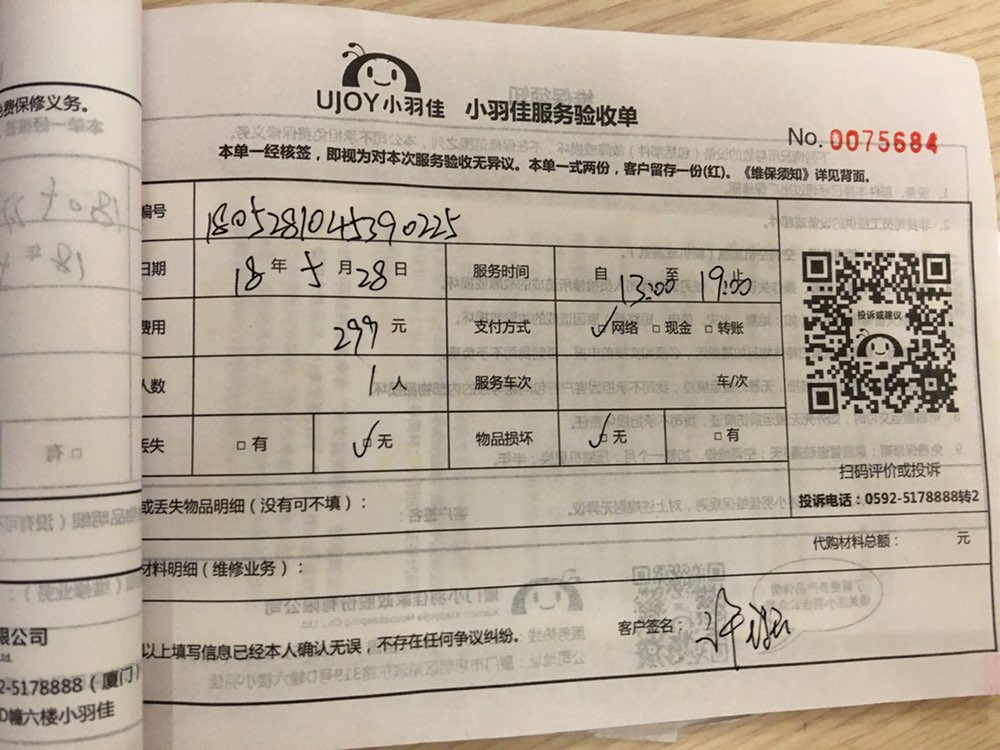 UJOY小羽佳 小羽佳服务验收单
No. 0075684
本单一经核签，即视为对本次服务验收无异议。本单一式两份，客户留存一份(红)。《维保须知》详见背面。
编号 1805281045390225
日期 18 年 5 月 28 日 服务时间 自 13:00 至 19:00 止
费用 299 元 支付方式 ✓网络 □现金 □转账
人数 1 人 服务车次 车/次
丢失 □有 ✓无 物品损坏 ✓无 □有
投诉或建议
扫码评价或投诉
投诉电话：0592-5178888转2
或丢失物品明细（没有可不填）：
代购材料总额： 元
材料明细（维修业务）：
客户签名：
以上填写信息已经本人确认无误，不存在任何争议纠纷。
费保修义务。
限公司
Ltd.
2-5178888（厦门）
D幢六楼小羽佳